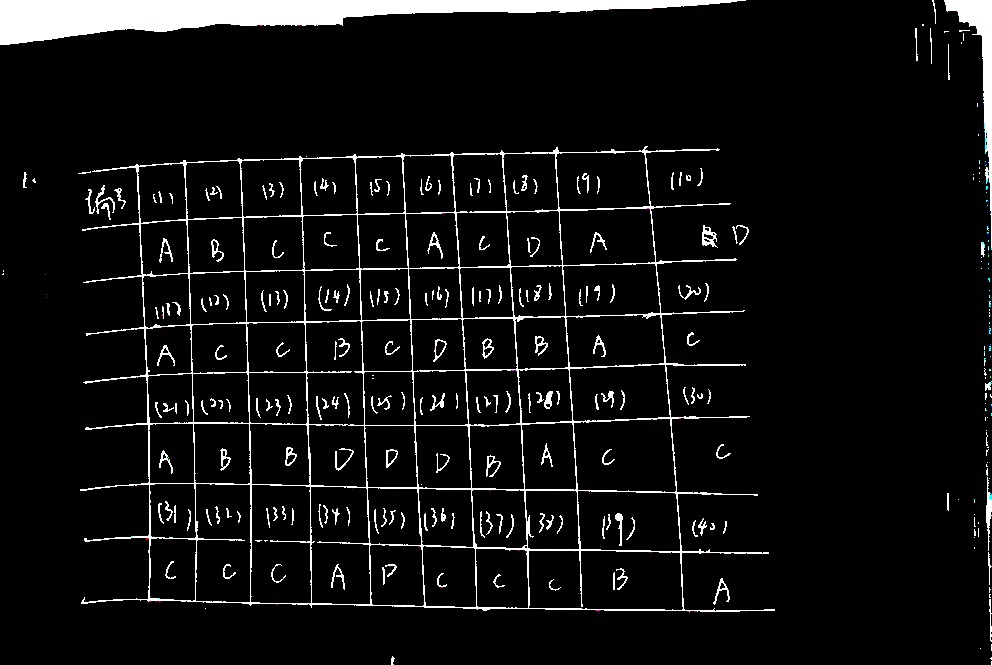 1.
编号 (1) (2) (3) (4) (5) (6) (7) (8) (9) (10)
A B C C C A C D A D
(11) (12) (13) (14) (15) (16) (17) (18) (19) (20)
A C C B C D B B A C
(21) (22) (23) (24) (25) (26) (27) (28) (29) (30)
A B B D D D B A C C
(31) (32) (33) (34) (35) (36) (37) (38) (39) (40)
C C C A D C C C B A